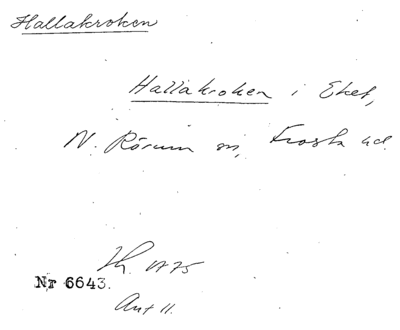 Hallakroken
Hallakroken i Eket,
N. Rörum sn, Frosta hd.
1775
Nr 6643.
Ant 11.